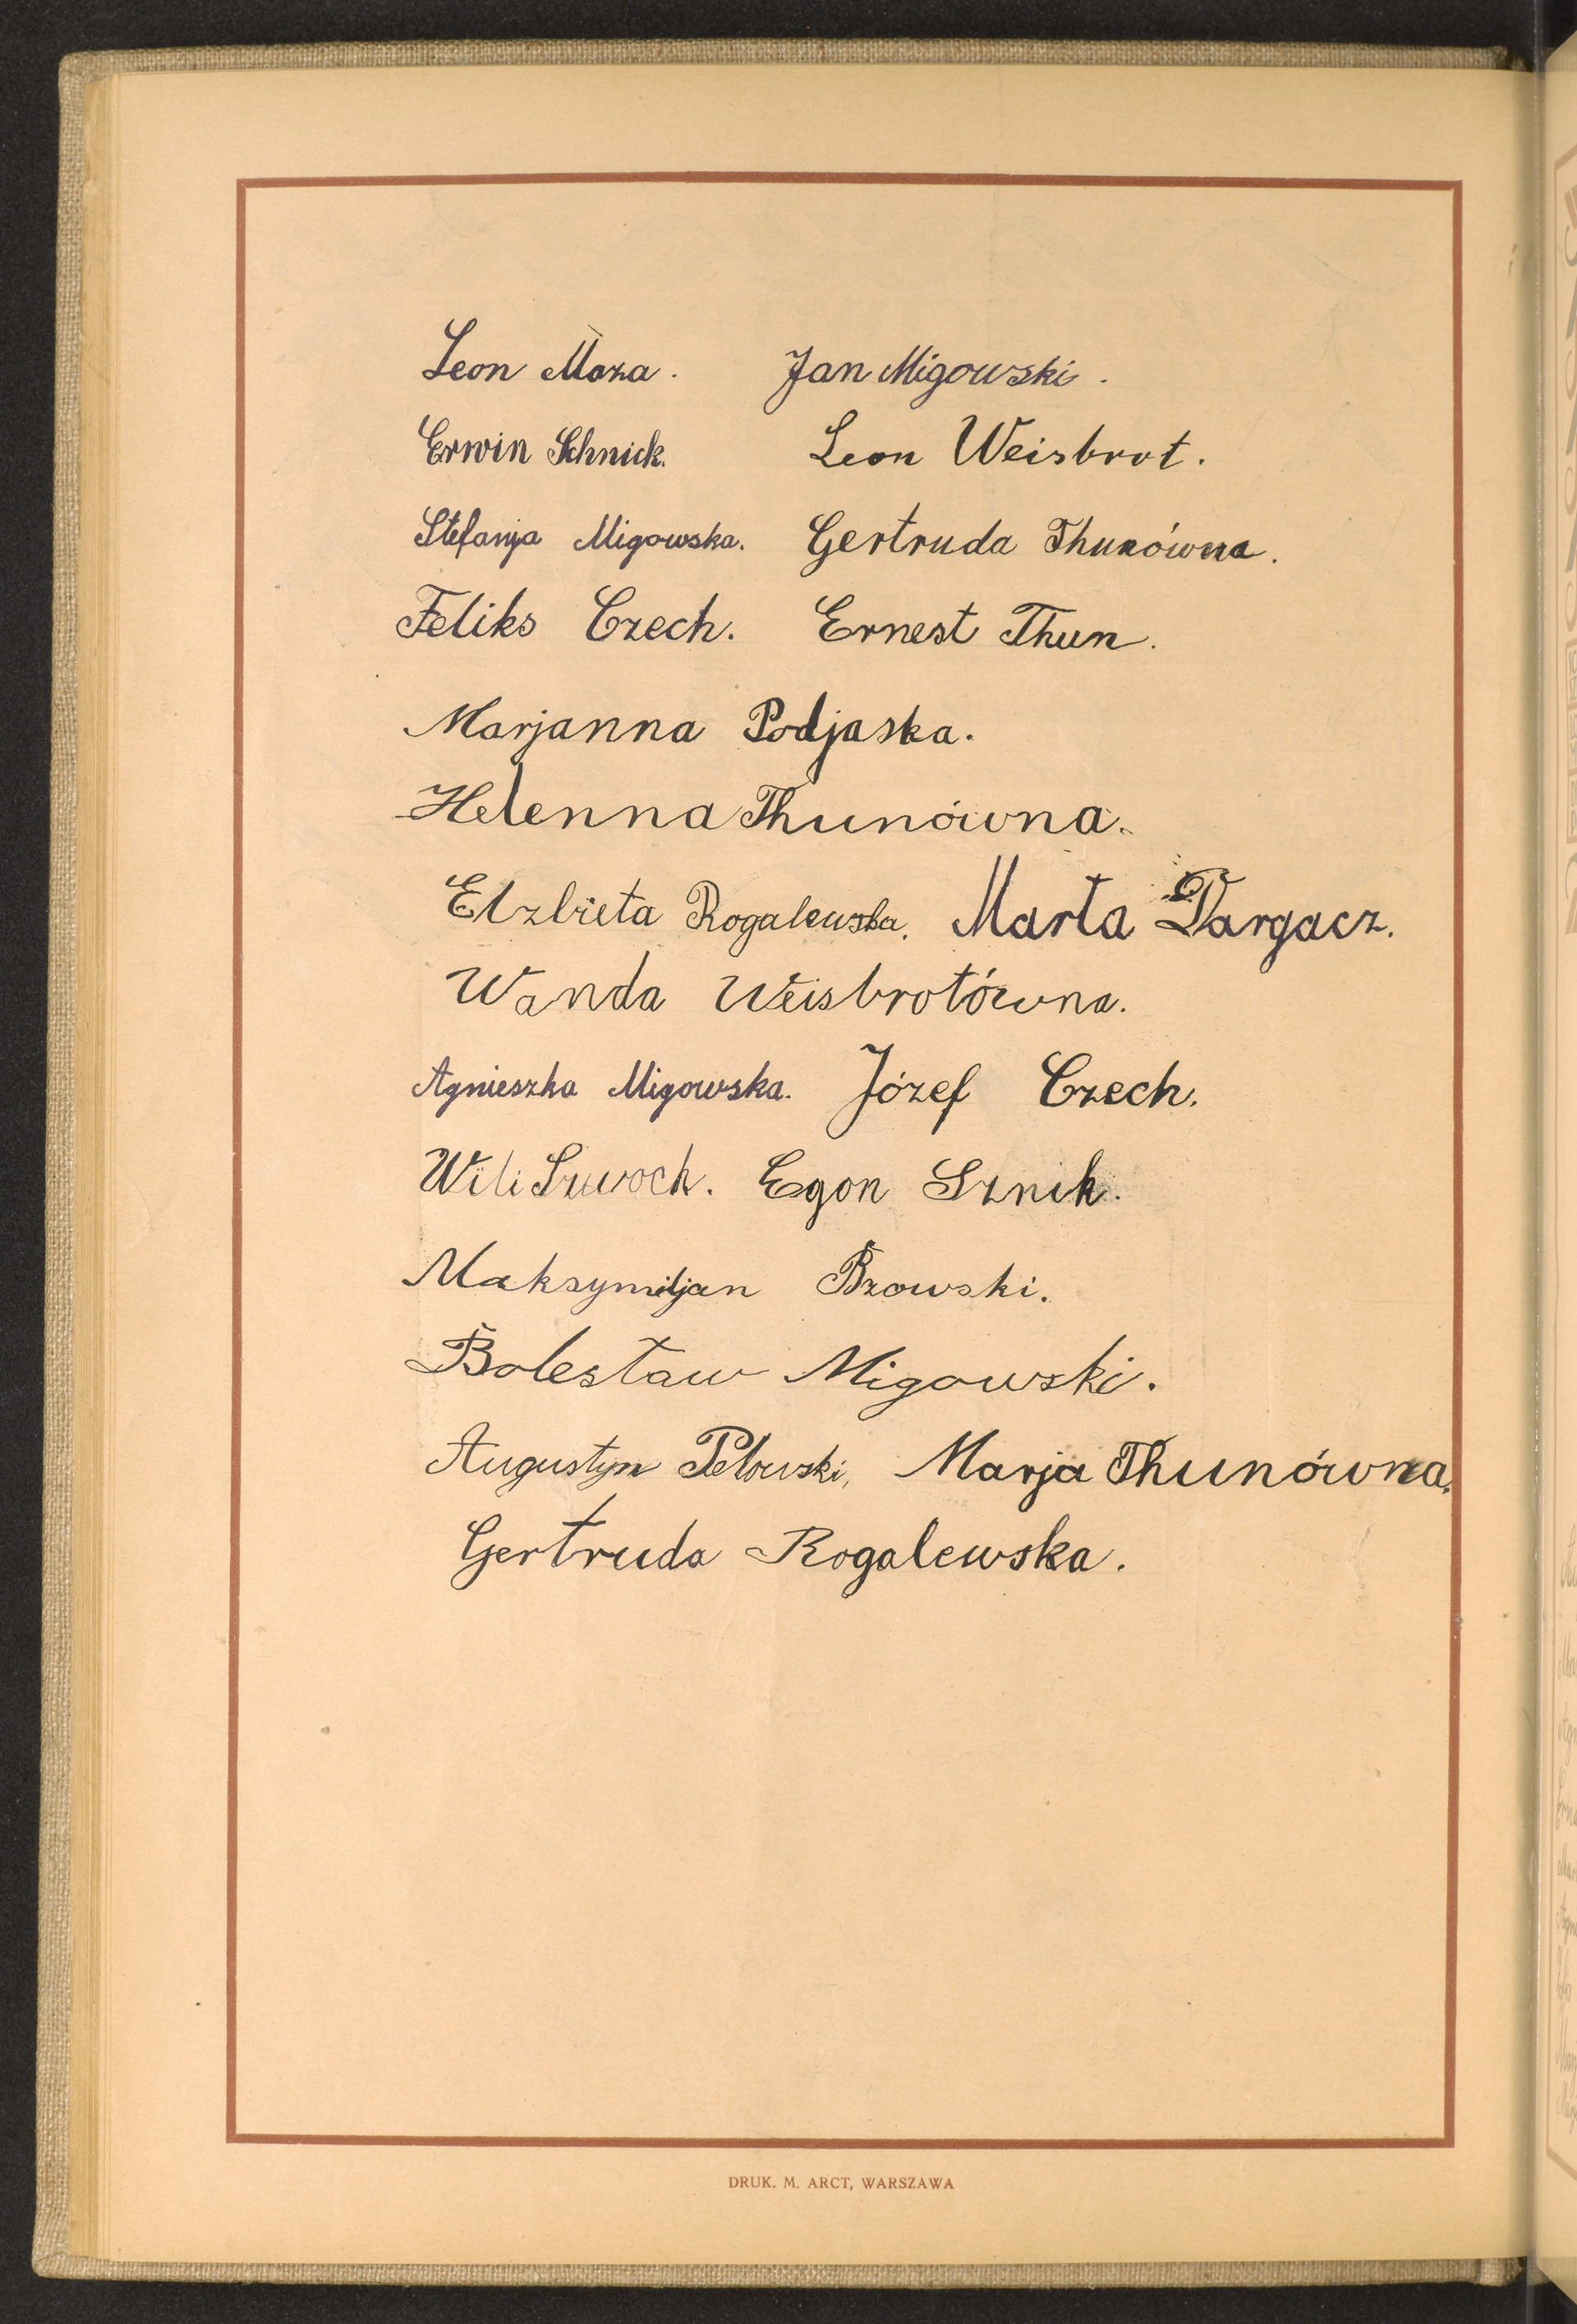 Leon Moza. Jan Migowski.
Erwin Schnick. Leon Weisbrot.
Stefanja Migowska. Gertruda Thunówna.
Feliks Czech. Ernest Thun.
Marjanna Podjaska.
Helenna Thunówna.
Elzbieta Rogalewska. Marta Dargacz.
Wanda Weisbrotówna.
Agnieszka Migowska. Józef Czech.
Wili Szwoch. Egon Sznik.
Maksymiljan Bzowski.
Bolesław Migowski.
Augustyn Pelowski, Marja Thunówna.
Gertruda Rogalewska.
DRUK. M. ARCT, WARSZAWA